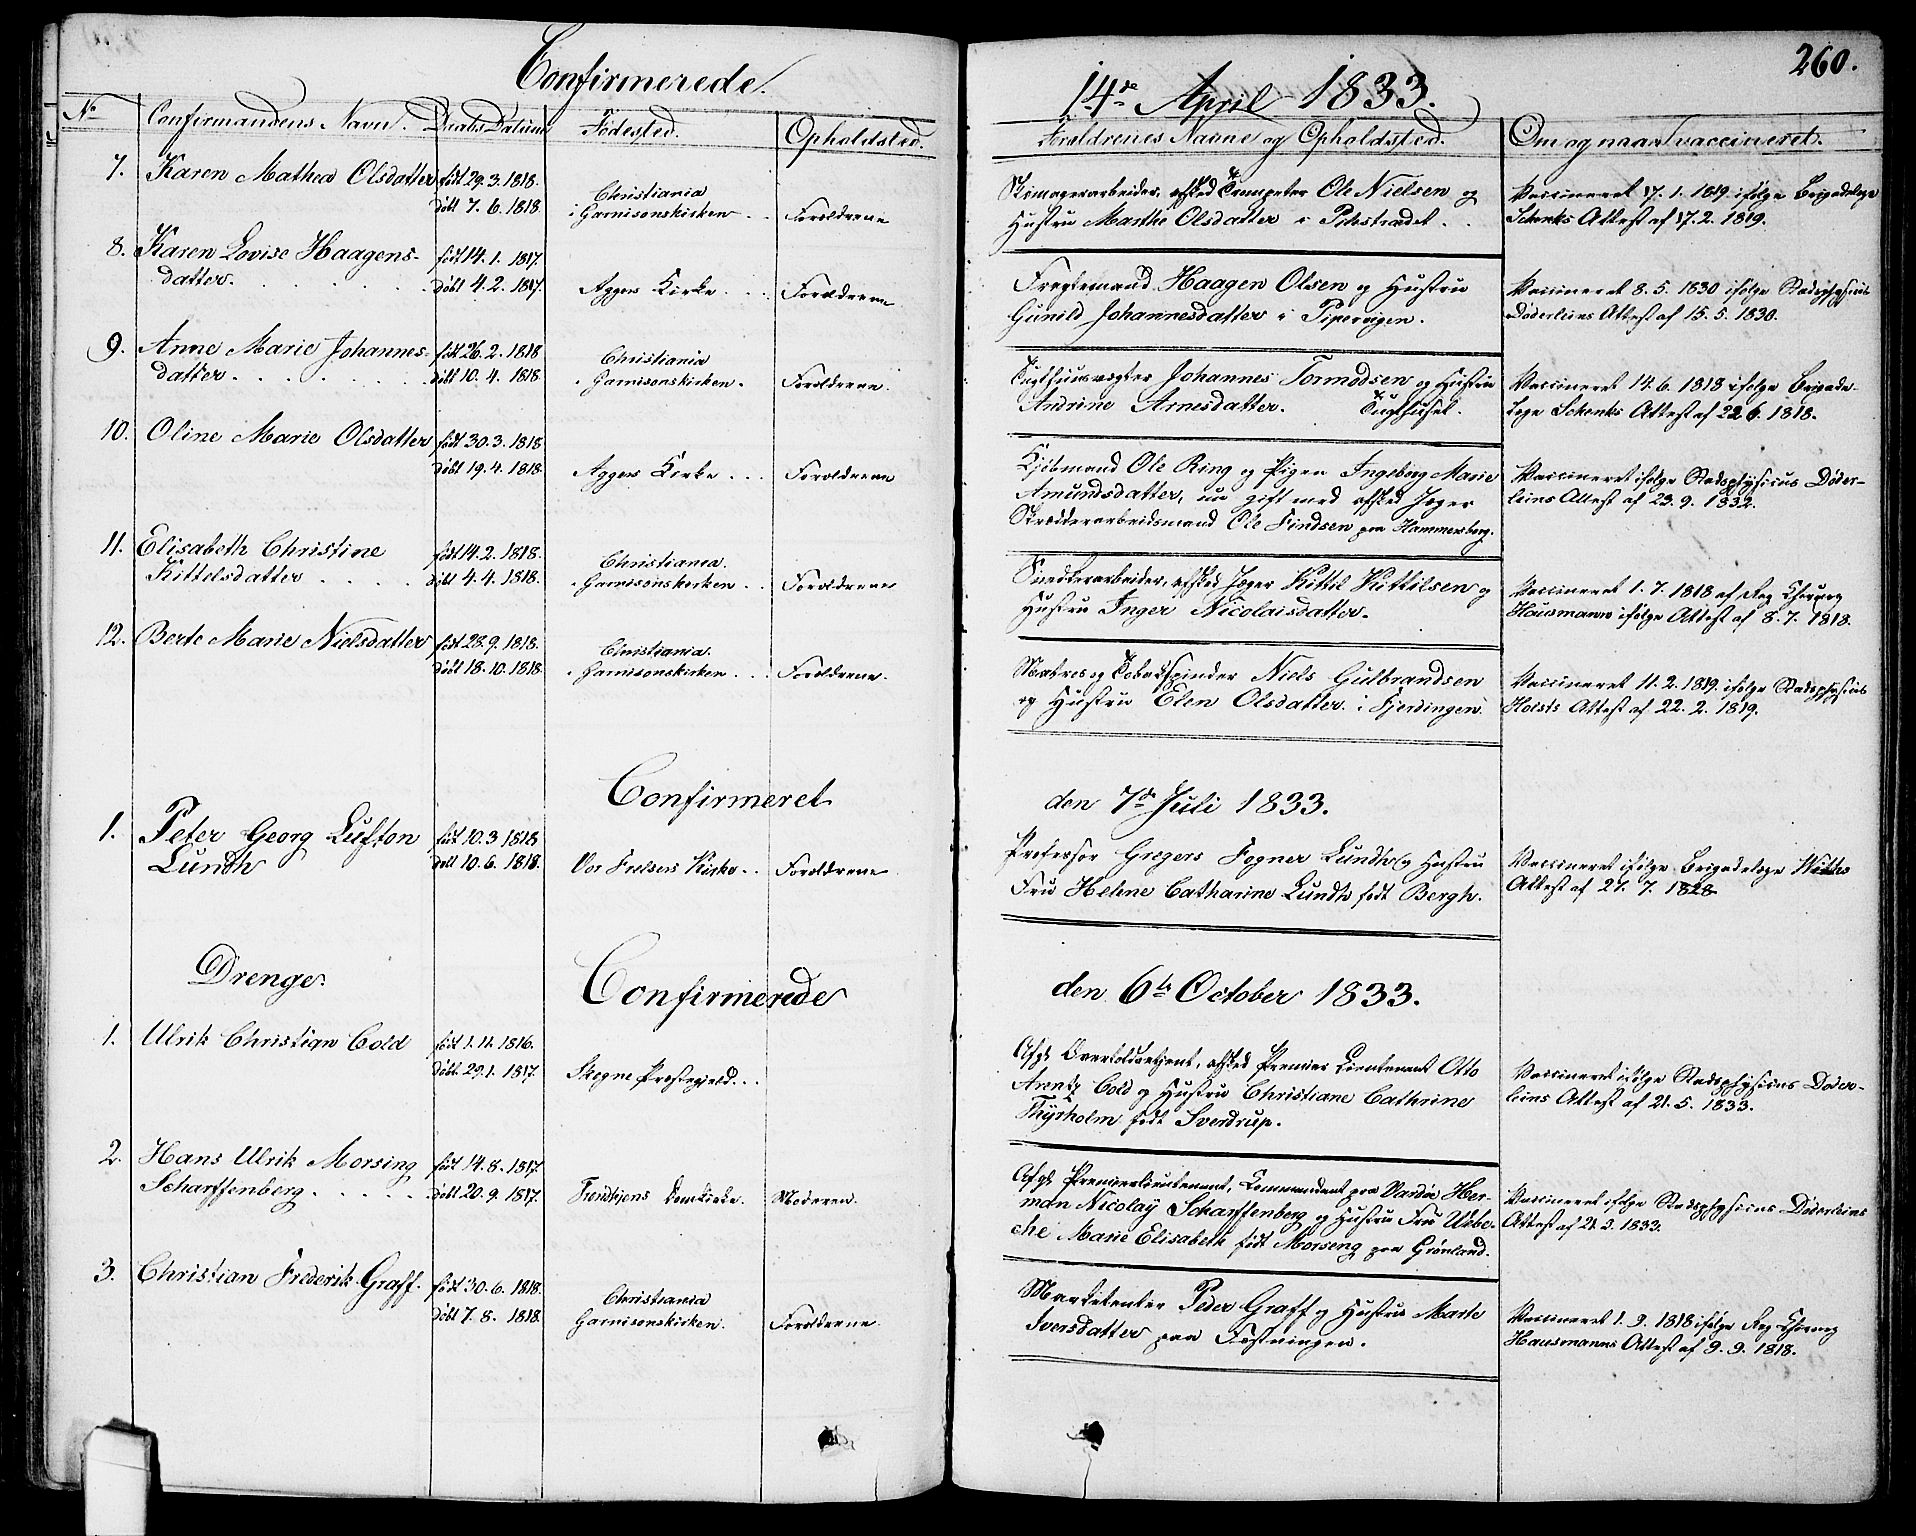 260.
Confirmerede.
14de April 1833.
No Confirmandens Navn. Daabs Datum Fødested. Opholdsted.
Forældrenes Navne og Opholdsted. Om og naar vaccineret.
7. Karen Mathea Olsdatter født 29.3.1818.
døbt 7.6.1818.
Christiania
i Garnisonskirken . . Forældrene
afsked Trompeter Ole Nielsen og
Hustru Marthe Olsdatter i Pilestrædet . .
Vaccineret 17.1.1819 ifølge Brigadelæge
Schenks Attest af 17.2.1819.
8. Karen Lovise Haagens- født 14.1.1817
datter. . . . . . døbt 4.2.1817.
Aggers Kirke . . . Forældrene
Haagen Olsen og Hustru
Gunild Johannesdatter i Pipervigen.
Vaccineret 8.5.1830 ifølge Stadsphysicus
Døderleins Attest af 15.5.1830.
9. Anne Marie Johannes- født 26.2.1818
datter. . . . . . døbt 10.4.1818.
Christiania
i Garnisonskirken. Forældrene.
Tugthuusvægter Johannes Tormodsen og Hustru
Andrine Arnesdatter. Tugthuset.
Vaccineret 14.6.1818 ifølge Brigade-
læge Schenks Attest af 22.6.1818.
10. Oline Marie Olsdatter født 30.3.1818
døbt 19.4.1818.
Aggers Kirke . . . Forældrene
Kjøbmand Ole Ring og Pigen Ingeborg Marie
Amundsdatter, nu gift med afsked Jæger
Skrædderarbeidsmand Ole Findsen paa Hammersborg.
Vaccineret ifølge Stadsphysicus Døder-
leins Attest af 23.9.1832.
11. Elisabeth Christine født 14.2.1818.
Kittelsdatter . . . . døbt 4.4.1818.
Christiania.
i Garnisonskirken . . Forældrene
Snedkerarbeider, afsked Jæger Kittil Kittilsen og
Hustru Inger Nicolaisdatter.
Vaccineret 1.7.1818 af Reg Chirurg
Hausmann ifølge Attest af 8.7.1818.
12. Berte Marie Nielsdatter født 28.9.1818.
døbt 18.10.1818
Christiania.
i Garnisonskirken . . . Forældrene.
og Tobakspinder Niels Gulbrandsen
og Hustru Elen Olsdatter i Fjerdingen.
Vaccineret 11.2.1819. ifølge Stadsphysicus
Holsts Attest af 22.2.1819.
Confirmeret
den 7de Juli 1833.
1. Peter Georg Lufton født 10.3 1818
Lundh døbt 10.6.1818.
Vor Frelsers Kirke . . Forældrene
Professor Gregers Fogner Lundh og Hustru
Fru Helene Catharine Lundh født Bergh.
Vaccineret ifølge Brigadelæge
Attest af 27.7.1828
Drenge.
Confirmerede
den 6te October 1833.
1. Ulrik Christian Cold født 1.11.1816.
døbt. 29.1.1817.
Skogne Præstegjeld . . .
Afgk Overtoldbetjent, afsked Premier Lieutenant Otto
Arentz Cold og Hustru Christiane Cathrine
Thyrholm født Sverdrup.
Vaccineret ifølge Stadsphysicus Døder-
leins Attest af 21.5.1833.
2. Hans Ulrik Morsing født 14.8.1817.
Scharffenberg . . . . . døbt 20.9.1817.
Trondhjems Domkirke. Moderen.
Afgk Premierlieutenant, Commandant paa Vardøe Her-
man Nicolay Scharffenberg og Hustru Fru Wibe-
che Marie Elisabeth født Morseng paa Grønland.
Vaccineret ifølge Stadsphysicus Døderleins
Attest af 21.5.1833.
3. Christian Frederik Graff. født 30.6.1818.
døbt 7.8.1818.
Christiania
Garnisonskirken. Forældrene.
Marketenter Peder Graff og Hustru Marte
Iversdatter paa Fæstningen.
Vaccineret 1.9.1818 ifølge Reg Chirurg
Hausmanns Attest af 9.9.1818.